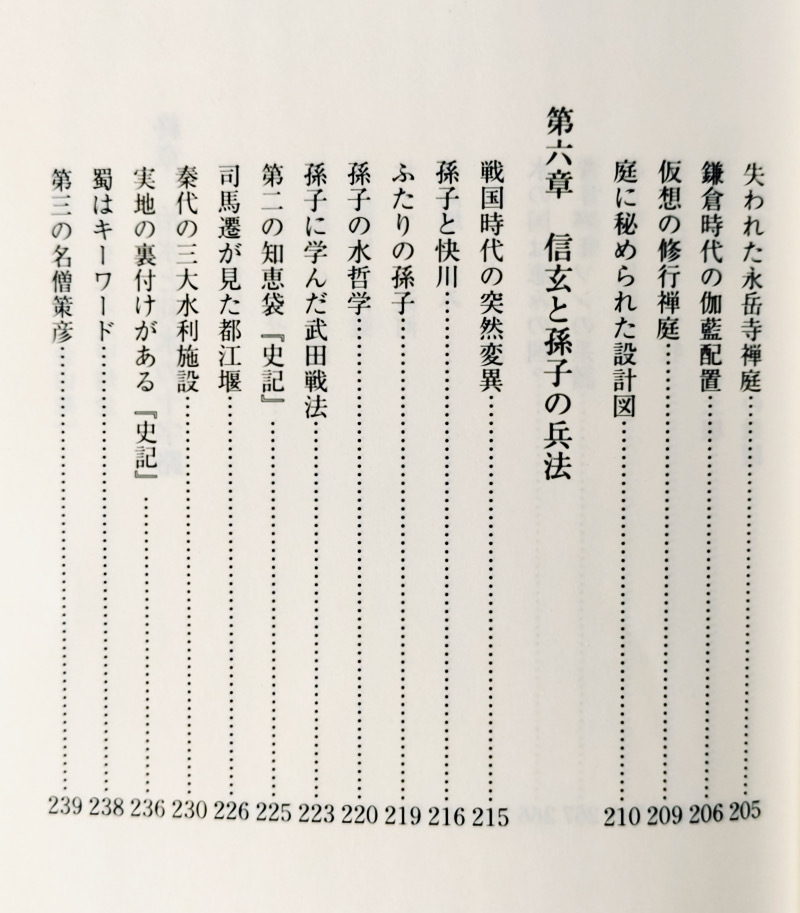 失われた永岳寺禅庭……205
鎌倉時代の伽藍配置……206
仮想の修行禅庭……209
庭に秘められた設計図……210
第六章　信玄と孫子の兵法
戦国時代の突然変異……215
孫子と快川……216
ふたりの孫子……219
孫子の水哲学……220
孫子に学んだ武田戦法……223
第二の知恵袋『史記』……225
司馬遷が見た都江堰……226
秦代の三大水利施設……230
実地の裏付けがある『史記』……236
蜀はキーワード……238
第三の名僧策彦……239